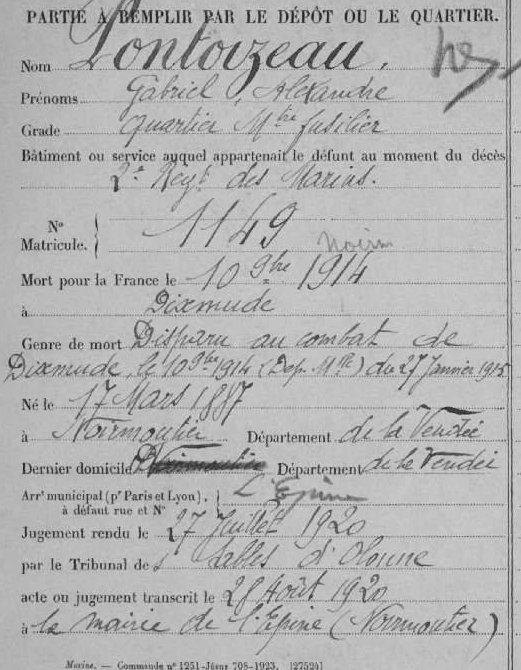 PARTIE À REMPLIR PAR LE DÉPÔT OU LE QUARTIER.
Nom Pontoizeau.
Prénoms Gabriel, Alexandre
Grade Quartier Mtre fusilier
Bâtiment ou service auquel appartenait le défunt au moment du décès
2e Regt des Marins.
No Matricule. 1149
Noirm
Mort pour la France le 10 9bre 1914
à Dixmude
Genre de mort Disparu au combat de
Dixmude, le 10 9bre 1914 (Dép. Mlle) du 27 Janvier 1915
Né le 17 Mars 1887
à Noirmoutier Département de la Vendée
Dernier domicile Noirmoutier Département de la Vendée
Arrt municipal (pr Paris et Lyon), à défaut rue et No L'Epine
Jugement rendu le 27 Juillet 1920
par le Tribunal de s Sables d'Olonne
acte ou jugement transcrit le 28 Août 1920
à la mairie de l'Epine (Noirmoutier)
Marine. — Commande no 1251-Jésus 708-1923. [27524]